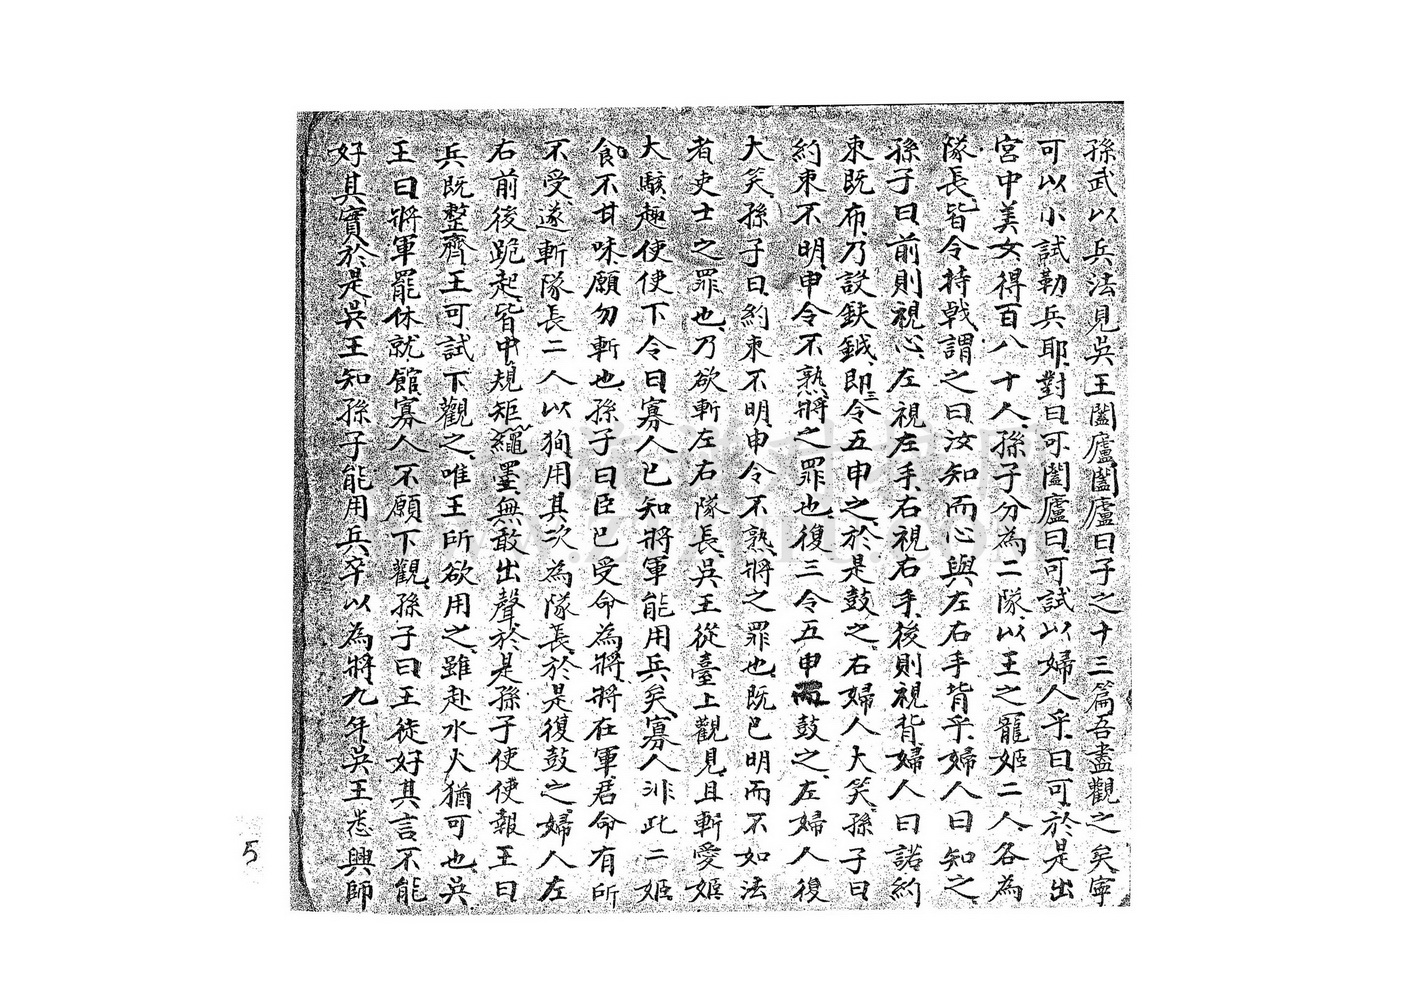 孫武以兵法見吳王闔廬闔廬曰子之十三篇吾盡觀之矣寧
可以小試勒兵耶對曰可闔廬曰可試以婦人乎曰可於是出
宮中美女得百八十人孫子分為二隊以王之寵姬二人各為
隊長皆令持戟謂之曰汝知而心與左右手背乎婦人曰知之
孫子曰前則視心左視左手右視右手後則視背婦人曰諾約
束既布乃設鈇鉞即三令五申之於是鼓之右婦人大笑孫子曰
約束不明申令不熟將之罪也復三令五申而鼓之左婦人復
大笑孫子曰約束不明申令不熟將之罪也既已明而不如法
者吏士之罪也乃欲斬左右隊長吳王從臺上觀見且斬愛姬
大駭趣使使下令曰寡人已知將軍能用兵矣寡人非此二姬
食不甘味願勿斬也孫子曰臣已受命為將將在軍君命有所
不受遂斬隊長二人以狥用其次為隊長於是復鼓之婦人左
右前後跪起皆中規矩繩墨無敢出聲於是孫子使使報王曰
兵既整齊王可試下觀之唯王所欲用之雖赴水火猶可也吳
王曰將軍罷休就館寡人不願下觀孫子曰王徒好其言不能
好其實於是吳王知孫子能用兵卒以為將九年吳王悉興師
5